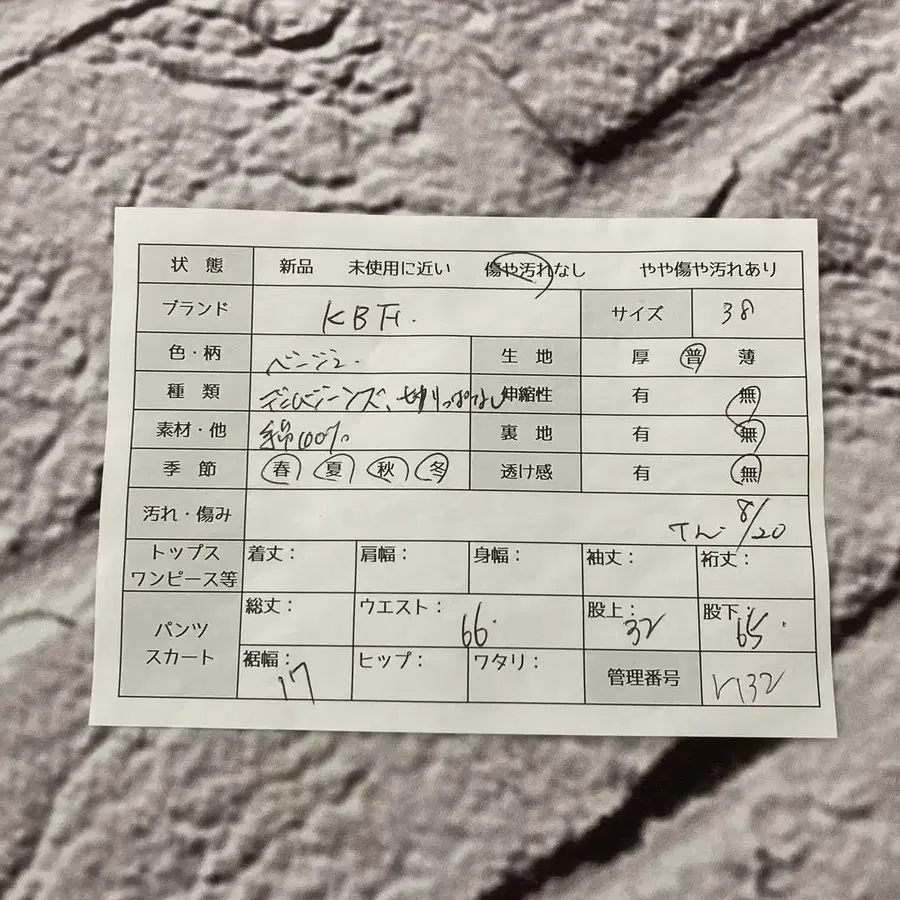 状 態 新品 未使用に近い 傷や汚れなし やや傷や汚れあり
ブランド KBF. サイズ 38
色・柄 ベージュ. 生 地 厚 普 薄
種 類 デニムジーンズ、切りっぱなし 伸縮性 有 無
素材・他 綿100% 裏 地 有 無
季 節 春 夏 秋 冬 透け感 有 無
汚れ・傷み 8/20
トップス
ワンピース等 着丈: 肩幅: 身幅: 袖丈: 裄丈:
パンツ
スカート 総丈: ウエスト: 66 股上: 32 股下: 65
裾幅: 17 ヒップ: ワタリ: 管理番号